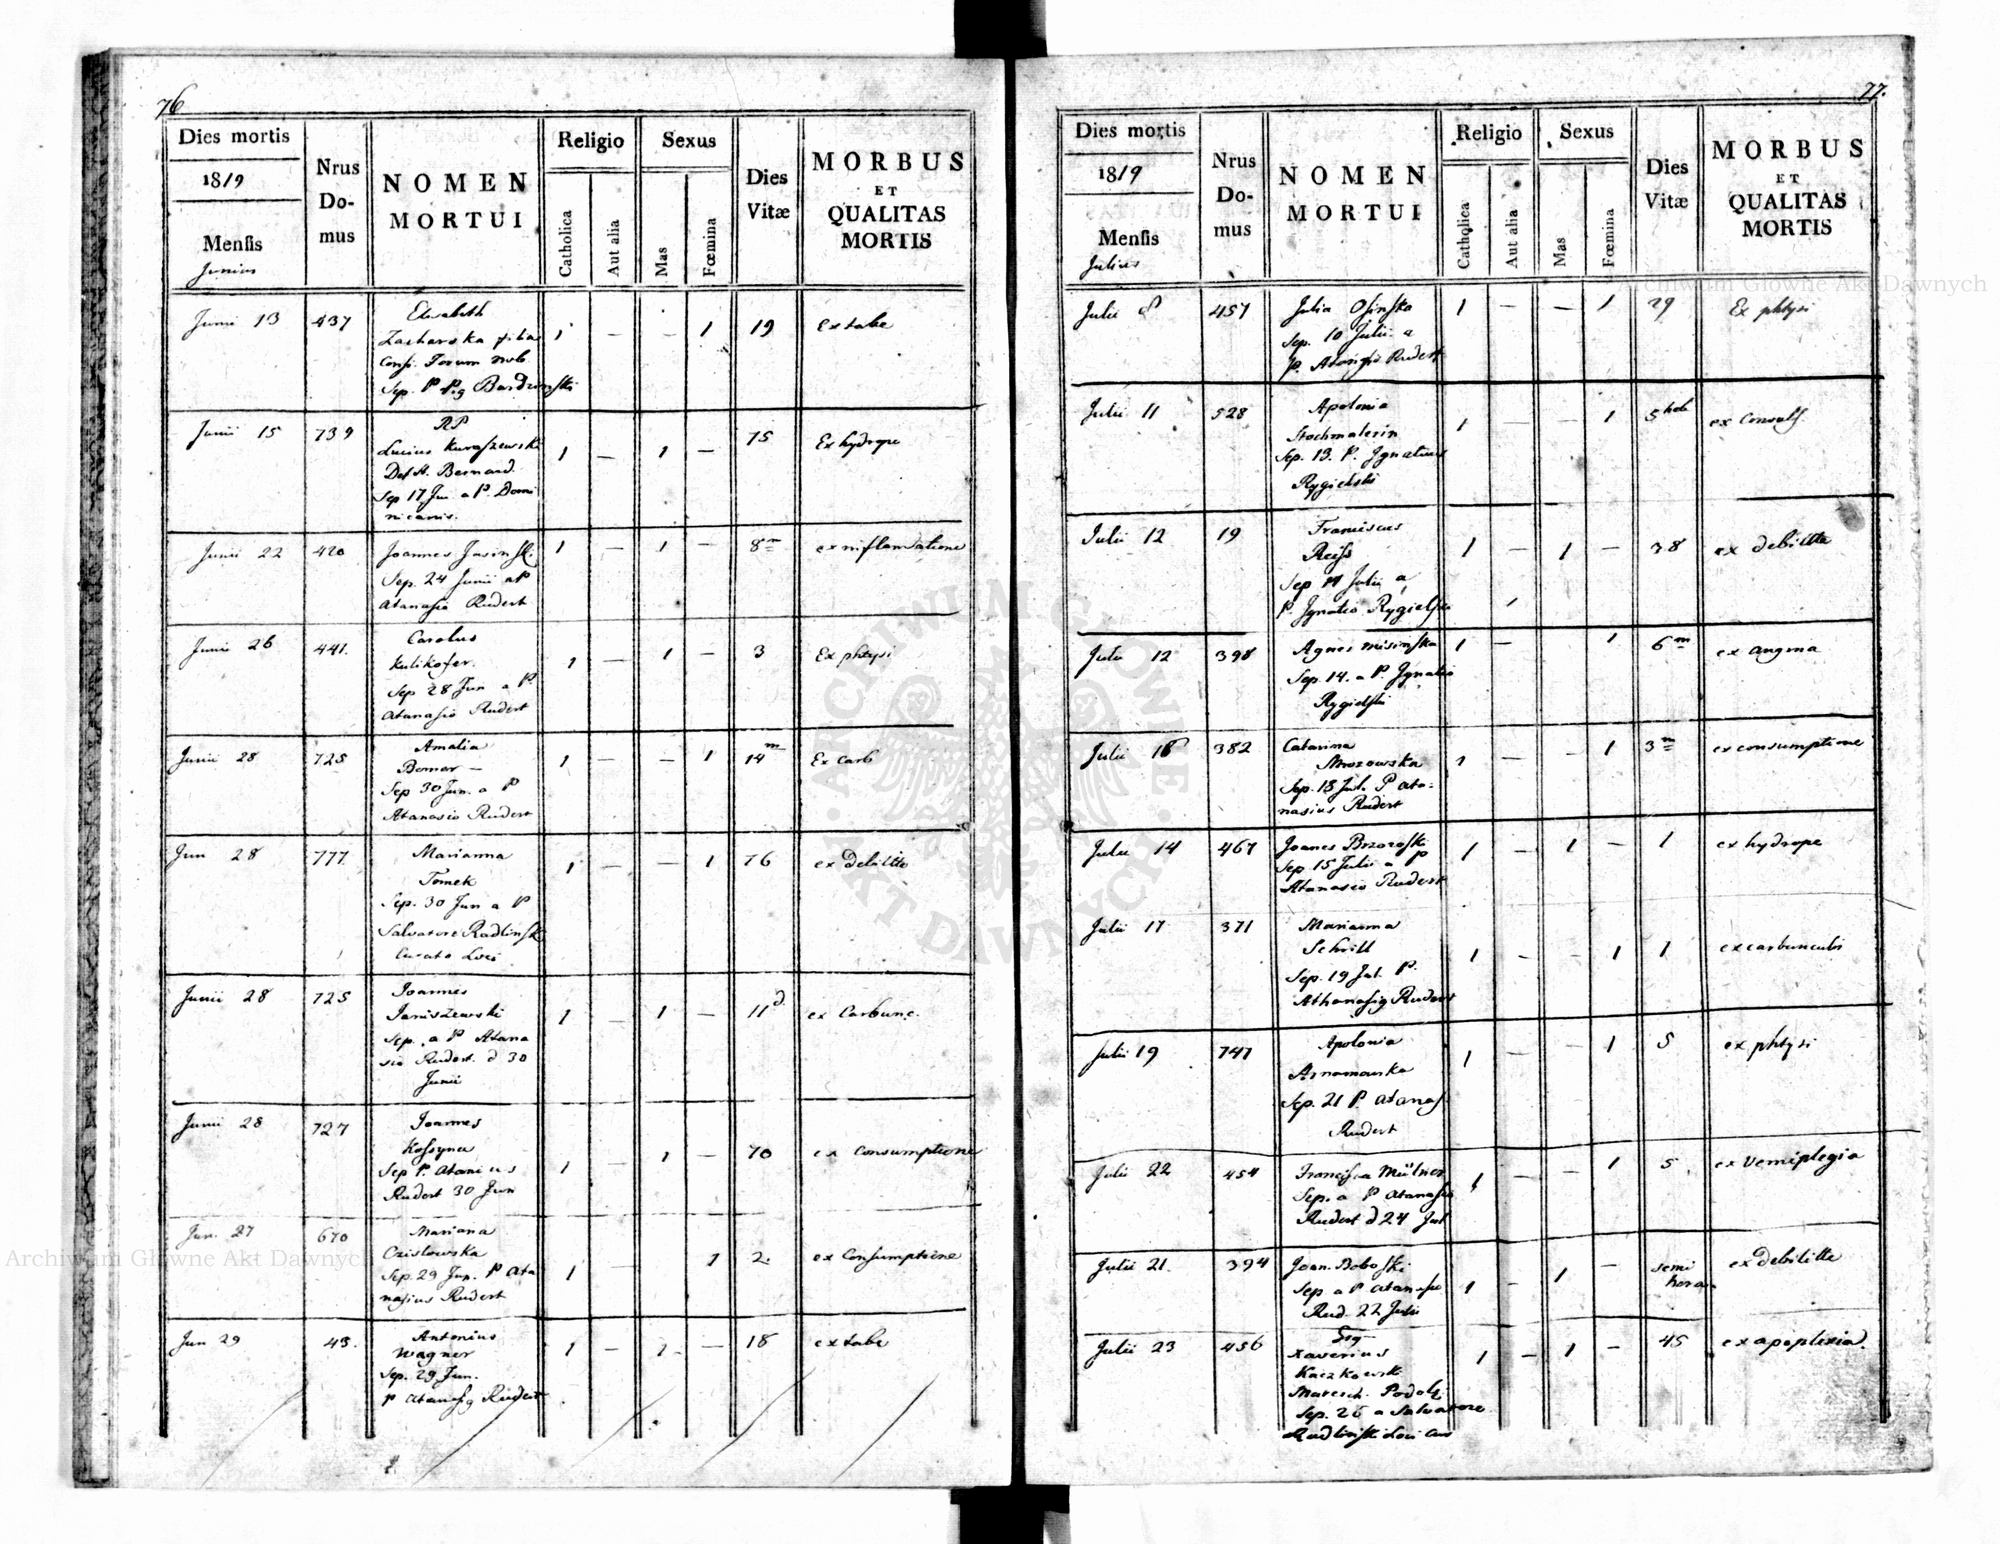 76
Dies mortis
1819
Mensis
Junius
Nrus
Do-
mus
NOMEN
MORTUI
Religio
Catholica
Aut alia
Sexus
Mas
Fœmina
Dies
Vitæ
MORBUS
ET
QUALITAS
MORTIS
Junii 13 437 Elisabeth
Zacharska filia 1 — — 1 19 Ex tabe
Cons. Forum nob
Sep. P.
Junii 15 739 RP 75
Lucius Kuraszewski 1 — 1 — Ex hydrope
Def. St. Bernard.
Sep 17 Jun a P. Domi
nicanis.
Junii 22 420 Joannes Jasinski 1 — 1 — 8 m ex inflamatione
Sep. 24 Junii a P
Atanasio Rudert
Junii 26 441. Carolus
Kulikofer. 1 — 1 — 3 Ex phtysi
Sep 28 Jun a P.
Atanasio Rudert
Junii 28 725 Amalia 1 — — 1 14 m Ex carb
Bomer —
Sep 30 Jun. a P
Atanasio Rudert
Jun 28 777. Marianna 1 — — 1 76 ex debilitte
Tomek
Sep. 30 Jun a P
Salvatore Radlinski
Curato Loci
Junii 28 725 Joannes
Janiszewski 1 — 1 — 11 d. ex Carbunc.
Sep. a P Atana
sio Rudert d 30
Junii
Junii 28 727 Joannes
Kossyna
Sep P. Atanius 1 — 1 — 70 ex Consumptione
Rudert 30 Jun
Jun. 27 670 Mariana
Czislowska 1 — 1 2. ex Consumptione
Sep. 29 Jun. P Ata
nasius Rudert
Jun 29 43. Antonius 1 — 1 — 18 ex tabe
Wagner
Sep. 29 Jun.
P Atanasio Rudert
77.
Dies mortis
1819
Mensis
Julius
Nrus
Do-
mus
NOMEN
MORTUI
Religio
Catholica
Aut alia
Sexus
Mas
Fœmina
Dies
Vitæ
MORBUS
ET
QUALITAS
MORTIS
Julii 8 457 Julia Osinska 1 — — 1 29 Ex phtysi
Sep. 10 Julii a
P. Atanasio Rudert
Julii 11 528 Apolonia 1 — — 1 5 ex Convuls.
Stochmalerin
Sep. 13. P. Ignatius
Rygielski
Julii 12 19 Franciscus
Reiss 1 — 1 — 38 ex debilitte
Sep 14 Julii a
P. Ignatio Rygielski
Julii 12 398 Agnes Misinska 1 — 1 6 m ex angina
Sep. 14. a P. Ignatio
Rygielski
Julii 16 382 Catarina 1 — — 1 3 m ex consumptione
Mrozowska
Sep. 18 Jul. P Ata-
nasius Rudert
Julii 14 467 Joanes Brzoroski 1 — 1 — 1 ex hydrope
Sep 15 Julii a P
Atanasio Rudert
Julii 17 371 Marianna
Schrill 1 — — 1 1 ex carbunculi
Sep. 19 Jul. P.
Athanasio Rudert
Julii 19 747 Apolonia 1 — — 1 5 ex phtysi
Arnamowska
Sep. 21 P. Atanas.
Rudert
Julii 22 454 Francisca Mülner 1 — — 1 5. ex Vemiplegia
Sep. a P Atanasio
Rudert d 24 Jul
Julii 21. 394 Joan. Boboski 1 — 1 — semi
hora ex debilitte
Sep a P Atanasio
Rud. 22 Julii
Julii 23 456 Xaverius 1 — 1 — 45 ex apoplexia.
Kaczkowski
Maresch. Podol.
Sep. 26 a Salvatore
Radlinski Loci Cur
Archiwum Główne Akt Dawnych
Archiwum Główne Akt Dawnych
ARCHIWUM GŁÓWNE
AKT DAWNYCH